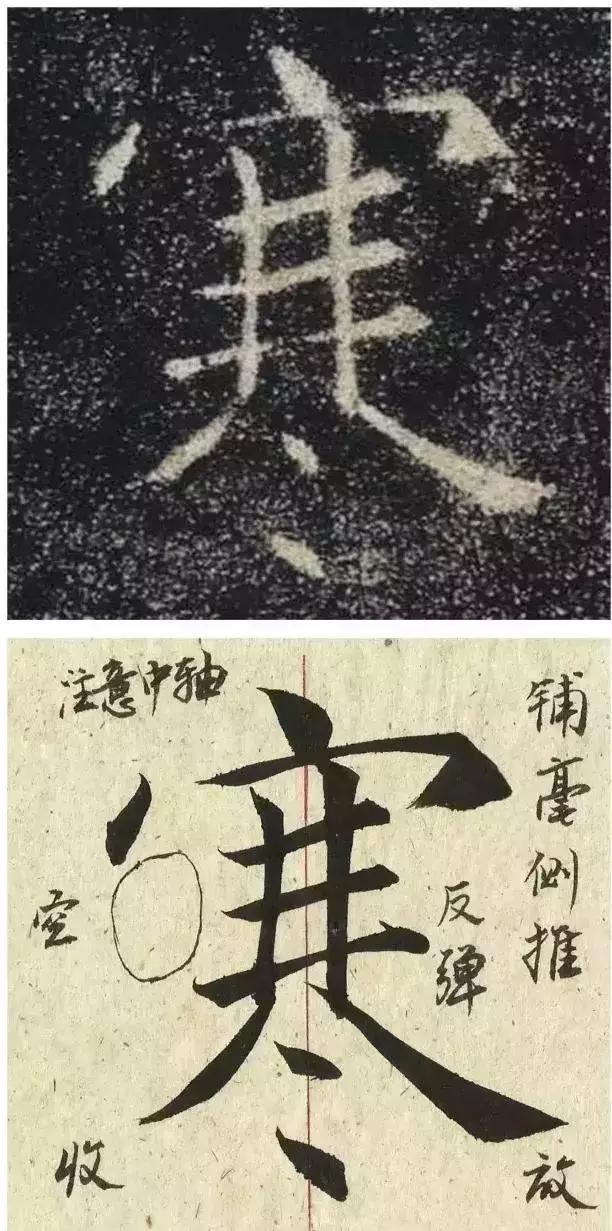 寒
注意中轴
寒
铺毫侧推
反弹
空
收
放